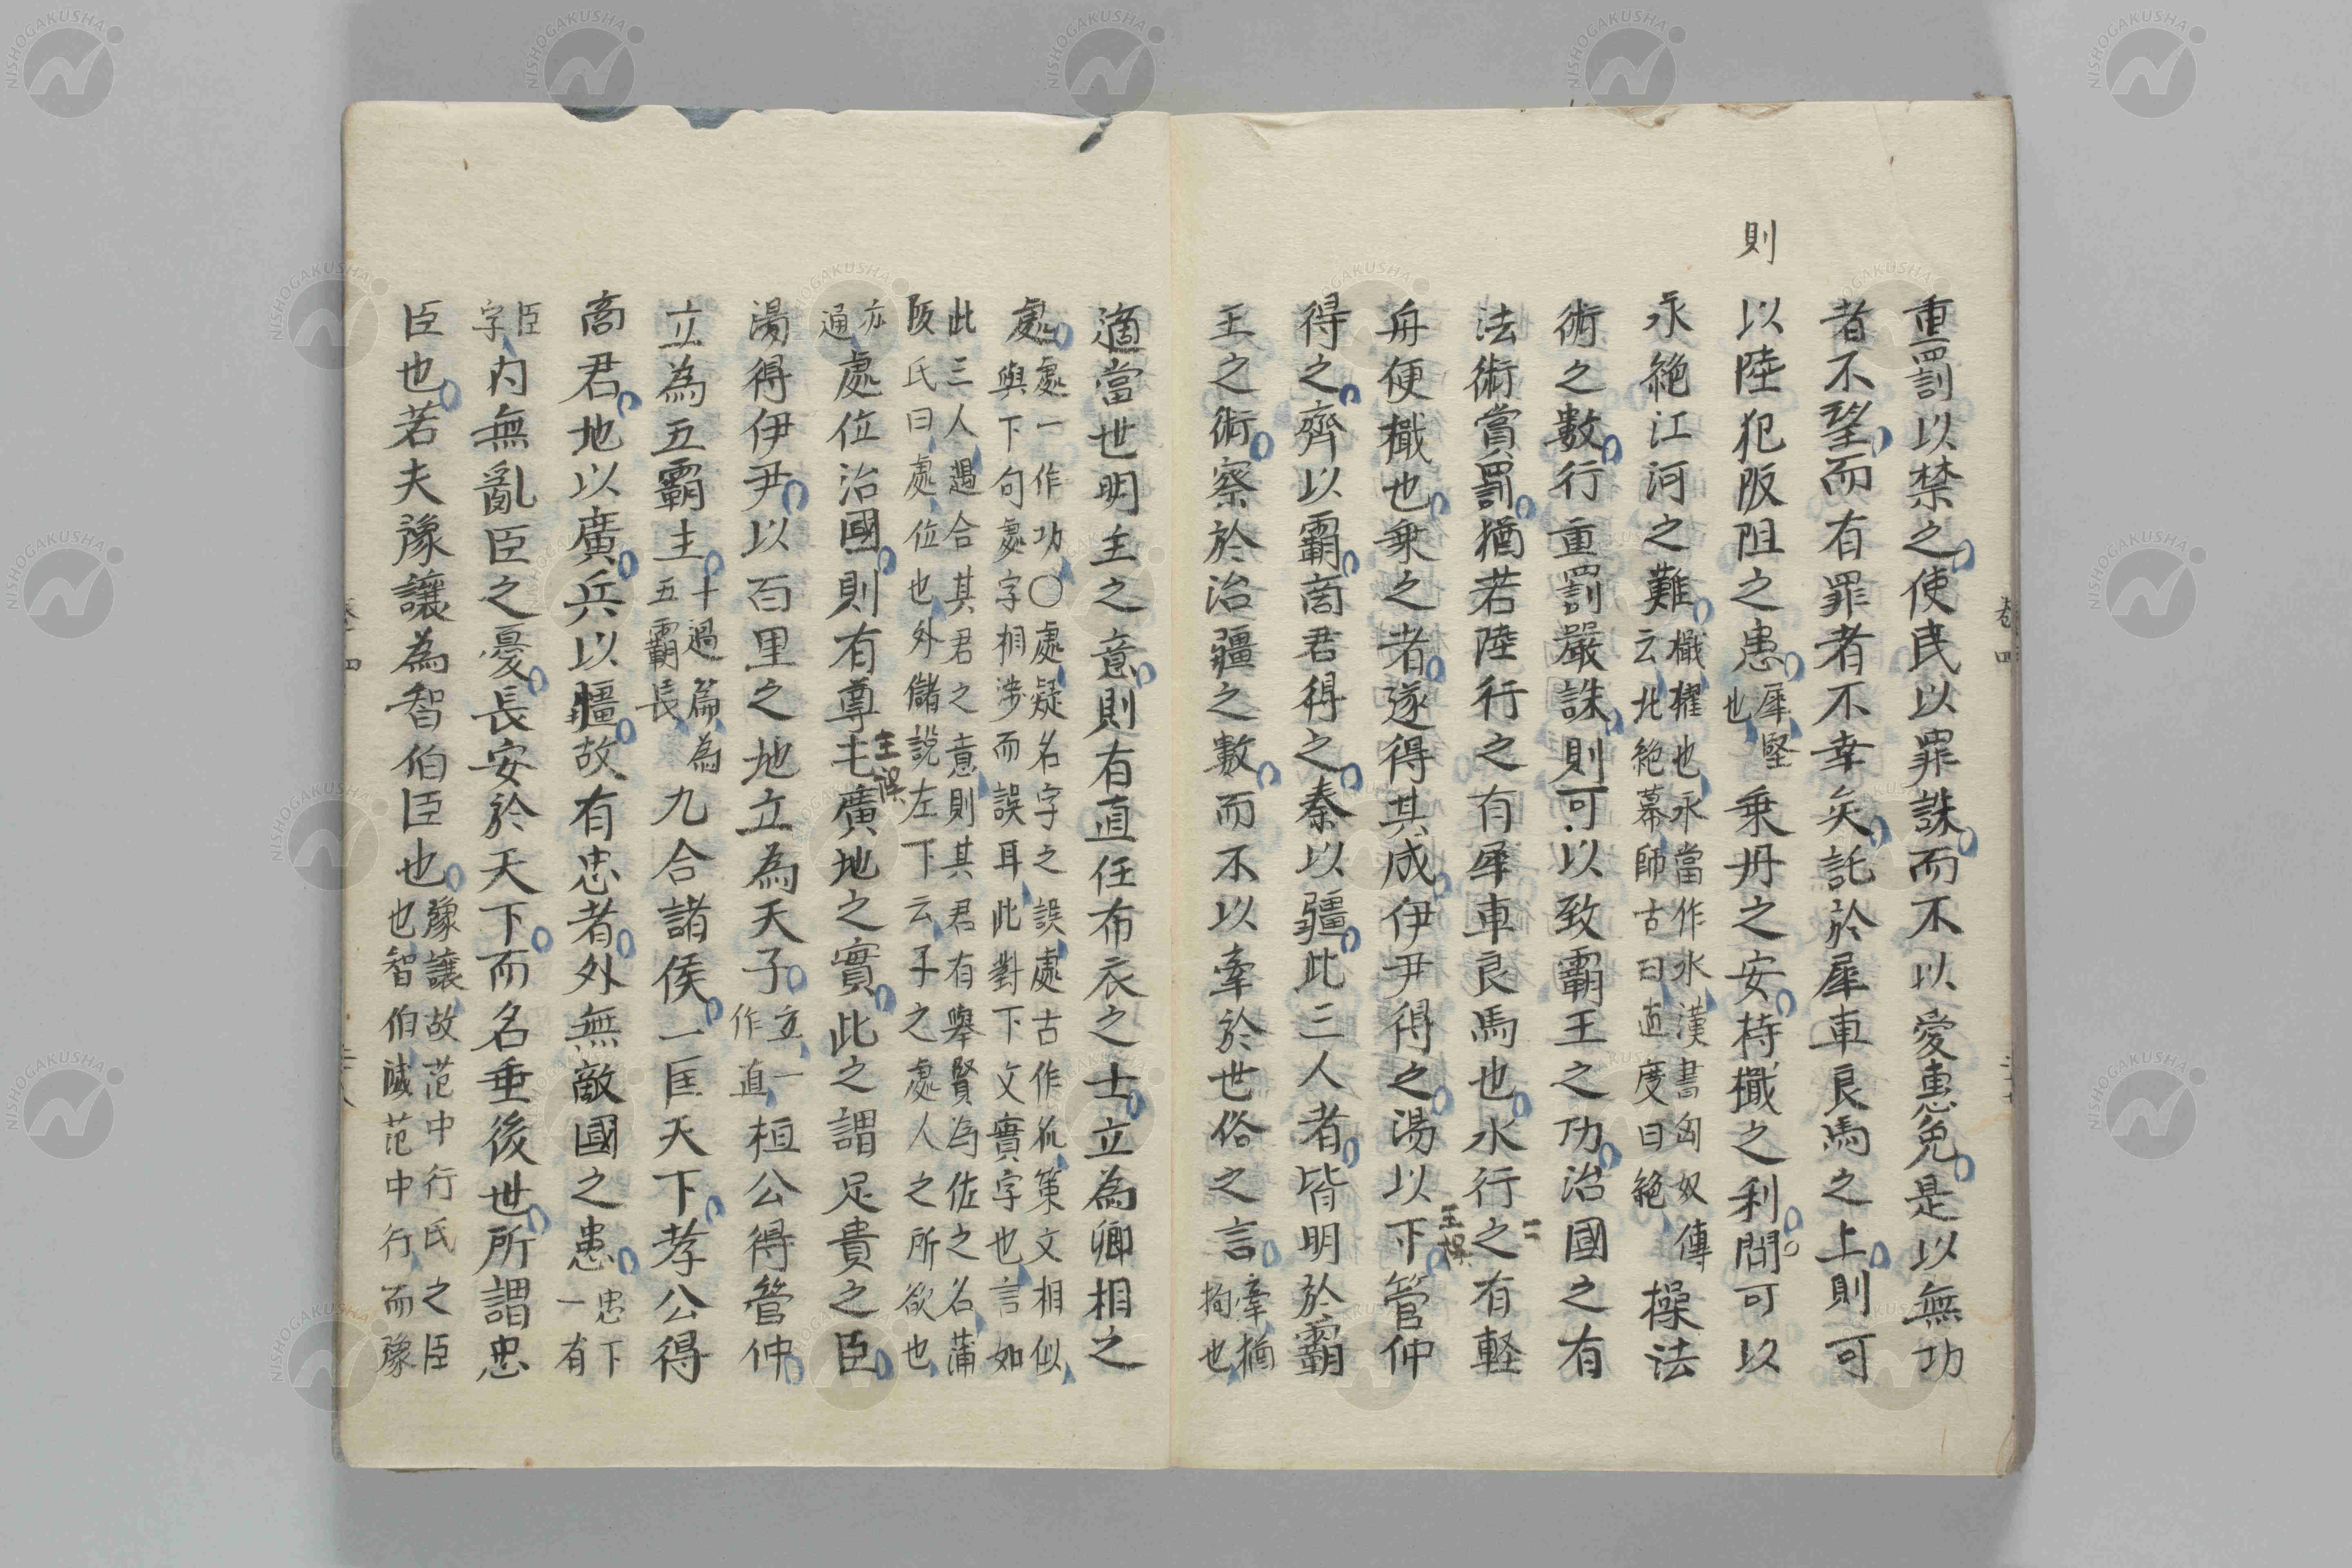 則
重罰以禁之使民以罪誅而不以愛惠免是以無功
者不望而有罪者不幸矣託於犀車良馬之上則可
以陸犯阪阻之患犀堅也乗舟之安持檝之利問可以
永絶江河之難檝櫂也永當作水漢書匈奴傳云北絶幕師古曰直度曰絶操法
術之數行重罰嚴誅則可以致霸王之功治國之有
法術賞罰猶若陸行之有犀車良馬也水行之有軽
舟便檝也乗之者遂得其成伊尹得之湯以下管仲
得之齊以霸商君得之秦以疆此三人者皆明於霸
王之術察於治疆之數而不以牽於世俗之言牽猶拘也
適當世明主之意則有直任布衣之士立為卿相之
處處一作功〇處疑名字之誤處古作処策文相似與下句處字相渉而誤耳此對下文實字也言如
此三人遇合其君之意則其君有舉賢為佐之名蒲阪氏曰處位也外儲説左下云子之處人之所欲也
亦通處位治國則有尊主廣地之實此之謂足貴之臣
湯得伊尹以百里之地立為天子立一作直桓公得管仲
立為五霸主十過篇為五霸長九合諸侯一匡天下孝公得
商君地以廣兵以疆故有忠者外無敵國之患忠下一有
臣字内無亂臣之憂長安於天下而名垂後世所謂忠
臣也若夫豫讓為智伯臣也豫讓故范中行氏之臣也智伯滅范中行而豫
卷四